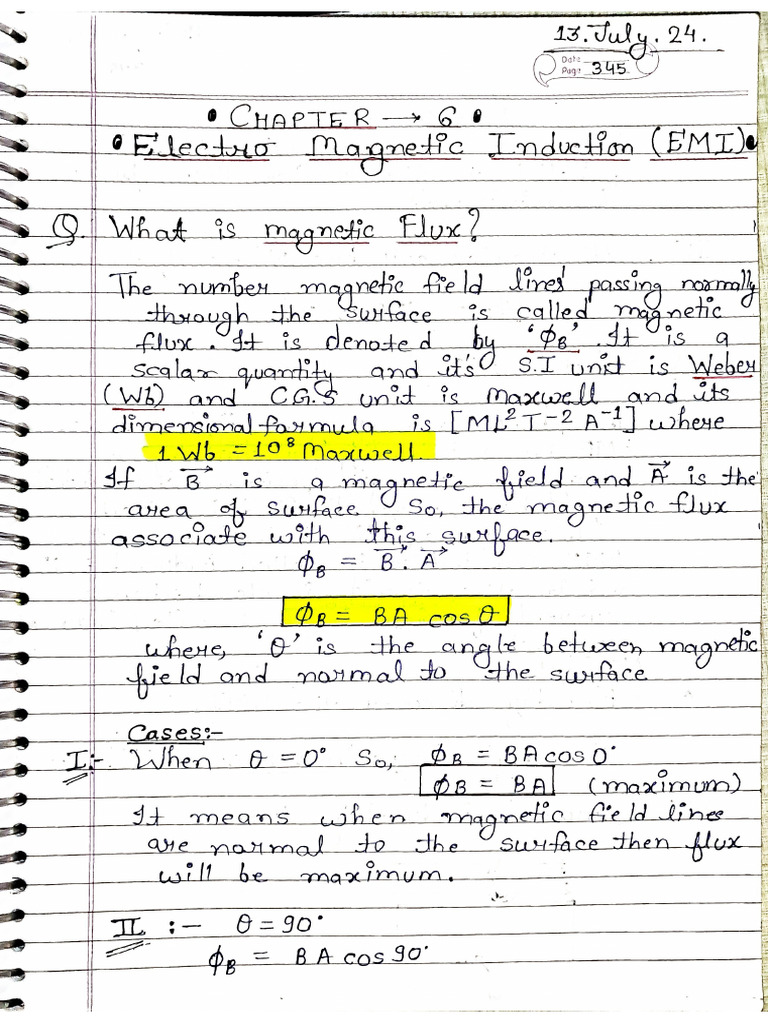 13.July.24.
Date
Page 345
• CHAPTER → 6 •
• Electro Magnetic Induction (EMI)•
Q. What is magnetic Flux?
The number magnetic field lines passing normally
through the surface is called magnetic
flux. It is denoted by 'ϕB'. It is a
scalar quantity and it's S.I unit is Weber
(Wb) and C.G.S unit is Maxwell and its
dimensional formula is [ML²T⁻²A⁻¹] where
1 Wb = 10⁸ Maxwell.
If B⃗ is a magnetic field and A⃗ is the
area of surface. So, the magnetic flux
associate with this surface.
ϕB = B⃗ . A⃗
ϕB = BA cos θ
where, 'θ' is the angle between magnetic
field and normal to the surface
Cases:-
I:- When θ = 0° So, ϕB = BA cos 0°
ϕB = BA (maximum)
It means when magnetic field lines
are normal to the surface then flux
will be maximum.
II :- θ = 90°
ϕB = BA cos 90°